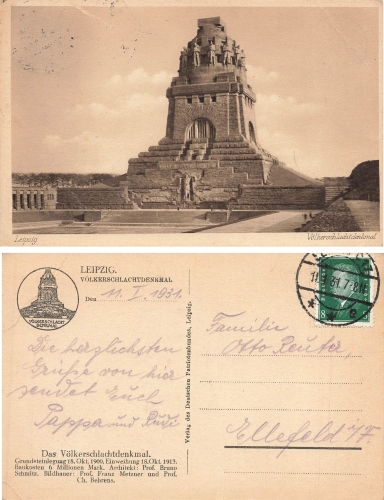 Leipzig
Völkerschlachtdenkmal
LEIPZIG.
VÖLKERSCHLACHTDENKMAL
Den 11. I. 1931.
VÖLKERSCHLACHT
DENKMAL
Die herzlichsten
Grüße von hier
sendet Euch
Pappa und Rudi
Das Völkerschlachtdenkmal.
Grundsteinlegung 18. Okt. 1900. Einweihung 18. Okt. 1913.
Baukosten 6 Millionen Mark. Architekt: Prof. Bruno
Schmitz. Bildhauer: Prof. Franz Metzner und Prof.
Ch. Behrens.
Verlag des Deutschen Patriotenbundes, Leipzig.
31.7-8N.
8
Familie
Otto Reuter,
Ellefeld i/V.